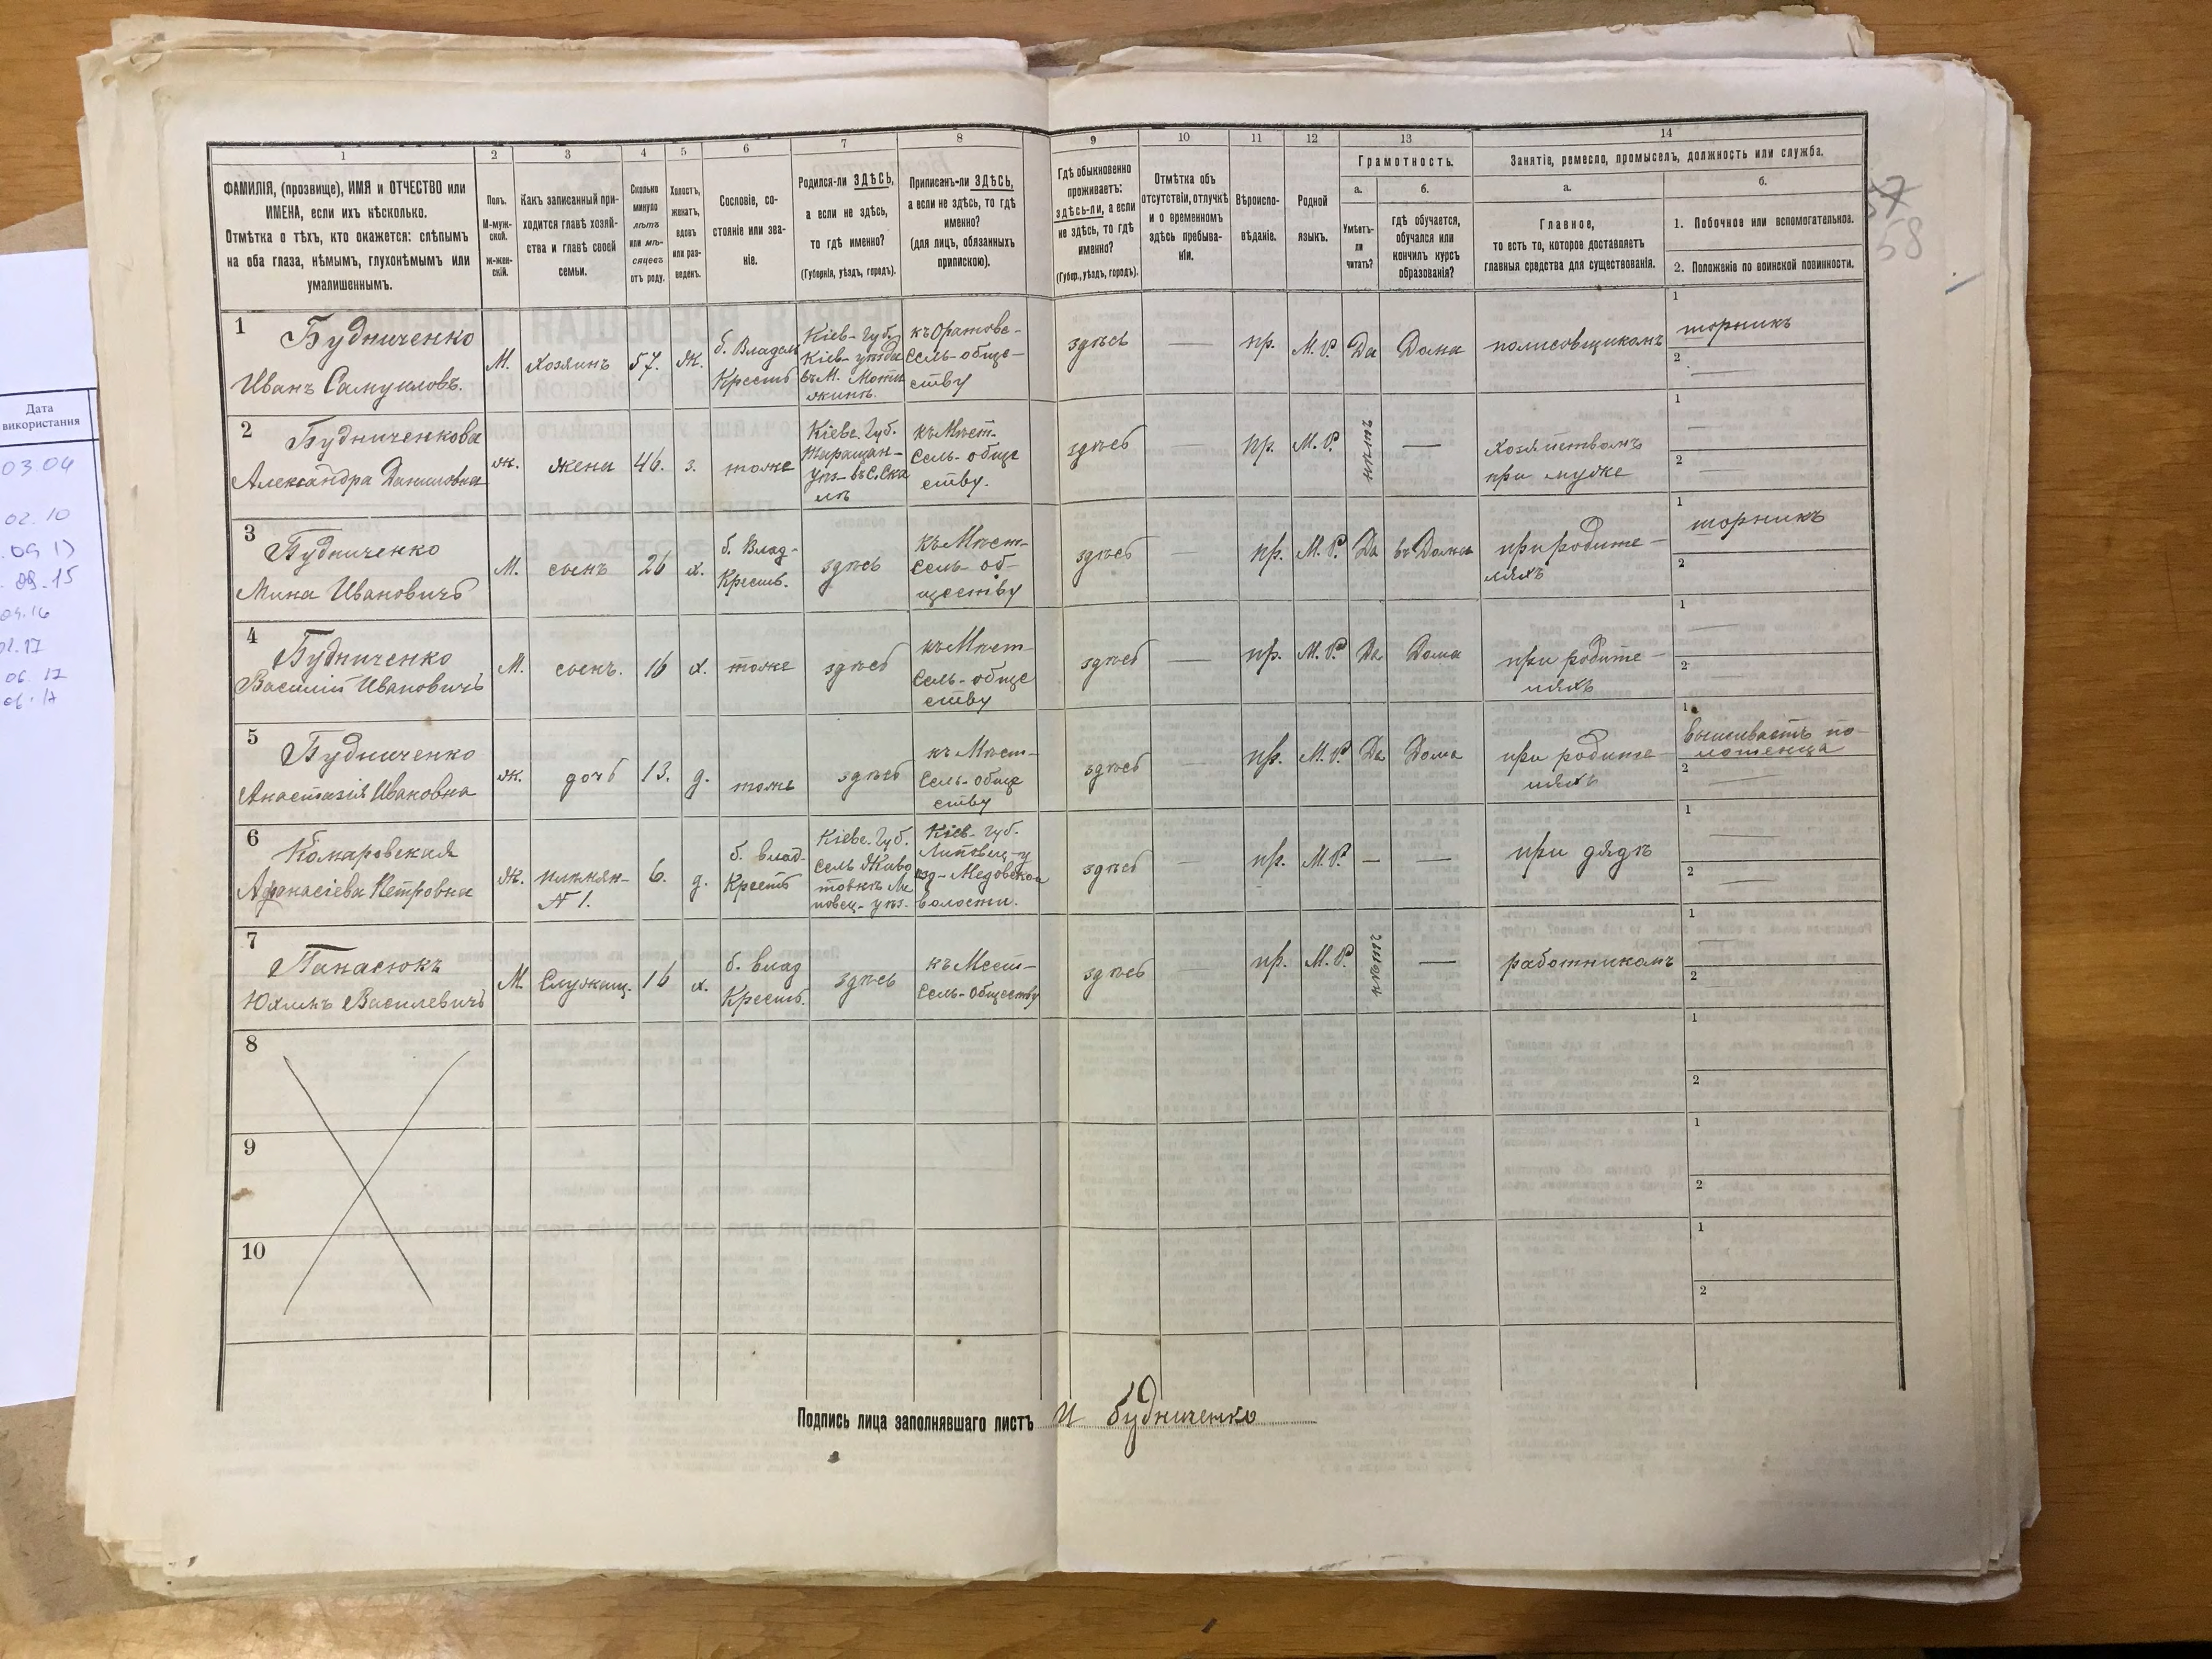 1 2 3 4 5 6 7 8 9 10 11 12 13 14
ФАМИЛІЯ, (прозвище), ИМЯ и ОТЧЕСТВО или
ИМЕНА, если ихъ нѣсколько.
Отмѣтка о тѣхъ, кто окажется: слѣпымъ
на оба глаза, нѣмымъ, глухонѣмымъ или
умалишеннымъ.
Полъ.
М-муж-
ской.
Ж-жен-
скій.
Какъ записанный при-
ходится главѣ хозяй-
ства и главѣ своей
семьи.
Сколько
минуло
лѣтъ
или мѣ-
сяцевъ
отъ роду.
Холостъ,
женатъ,
вдовъ
или раз-
веденъ.
Сословіе, со-
стояніе или зва-
ніе.
Родился-ли ЗДѢСЬ,
а если не здѣсь,
то гдѣ именно?
(Губернія, уѣздъ, городъ).
Приписанъ-ли ЗДѢСЬ,
а если не здѣсь, то гдѣ
именно?
(для лицъ, обязанныхъ
припискою).
Гдѣ обыкновенно
проживаетъ:
здѣсь-ли, а если
не здѣсь, то гдѣ
именно?
(Губер., уѣздъ, городъ).
Отмѣтка объ
отсутствіи, отлучкѣ
и о временномъ
здѣсь пребыва-
ніи.
Вѣроиспо-
вѣданіе.
Родной
языкъ.
Грамотность.
а.
Умѣетъ-
ли
читать?
б.
гдѣ обучается,
обучался или
кончилъ курсъ
образованія?
Занятіе, ремесло, промыселъ, должность или служба.
а.
Главное,
то есть то, которое доставляетъ
главныя средства для существованія.
б.
1. Побочное или вспомогательное.
2. Положеніе по воинской повинности.
57
58
1
Будниченко
Иванъ Самуиловъ.
М.
Хозяинъ
57.
Ж.
б. Владел
Крестъ
Кіев- Губ.
Кіев- уѣзда
въ М. Моти
жинѣ.
къ Оратовс-
Сель- обще-
ству
здѣсь
—
пр.
М. Р.
Да
Дома
полисовщикомъ
1
шорникъ
2
—
2
Будниченкова
Александра Даниловна
ж.
жена
46.
з.
тоже
Кіевс. Губ.
Таращан-
Уѣз- въ С. Ска
лѣ
къ Мѣст-
Сель- обще
ству.
здѣсь
пр.
М. Р.
—
хозяйствомъ
при мужѣ
1
—
2
—
3
Будниченко
Мина Ивановичъ
М.
сынъ
26
х.
б. Влад-
Крестъ.
здѣсь
къ Мѣст-
Сель- об-
ществу
здѣсь
—
пр.
М. Р.
Да
въ Дома
при родите-
ляхъ
1
шорникъ
2
4
Будниченко
Василій Ивановичъ
М.
сынъ.
16
х.
тоже
здѣсь
къ Мѣст-
Сель- обще
ству
здѣсь
—
пр.
М. Р.
Да
Дома
при родите-
ляхъ
1
—
2
—
5
Будниченко
Анастазія Ивановна
ж.
дочь
13.
д.
тоже
здѣсь
къ Мѣст-
Сель- обще
ству
здѣсь
пр.
М. Р.
Да
Дома
при родите-
ляхъ
1
вышиваетъ по-
лотенца
2
—
6
Комаровская
Афанасіева Петровна
Ж.
племян-
N 1.
6.
д.
б. влад-
Крестъ
Кіевс. Губ.
Сель Живо
товкѣ Ли
повец- уѣз.
Кіев- губ.
Липовец- у
ѣзд- Медовской
волости.
здѣсь
—
пр.
М. Р.
—
—
при дядѣ
1
—
2
—
7
Панасюкъ
Юхимъ Василевичъ
М
Служащ.
16
х.
б. влад
Крестъ.
здѣсь
къ Мест-
Сель- Обществу
здѣсь
—
пр.
М. Р.
—
работникомъ
1
—
2
—
8
1
2
9
1
2
10
1
2
Подпись лица заполнявшаго листъ И Будниченко
Дата
використання
03.04
02.10
09.15
04.16
06.17
06.17